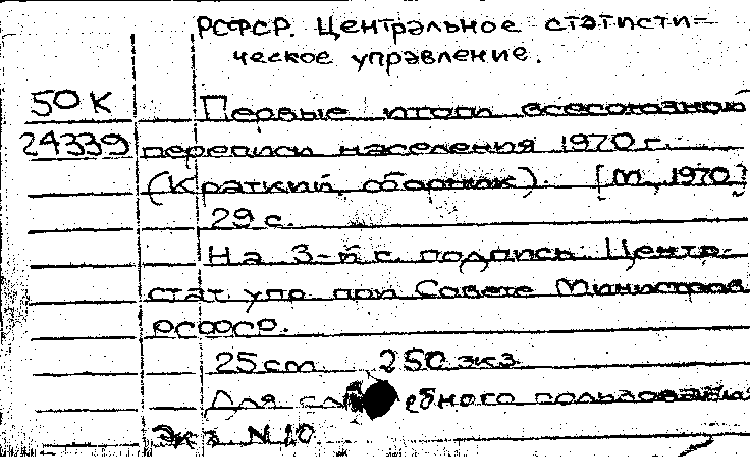 РСФСР. Центральное статисти-
ческое управление.
50 К Первые итоги всесоюзной
24339 переписи населения 1970 г.
(Краткий сборник). [М., 1970]
29 с.
На 3-й с. подпись: Центр.
стат. упр. при Совете Министров
РСФСР.
25 cm. 250 экз.
Для служебного пользования
Экз. N 10